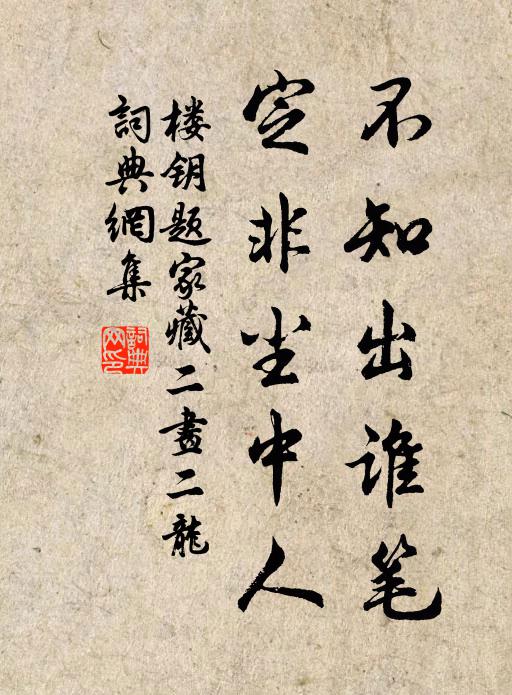 不知出谁笔
定非尘中人
楼钥题家藏二畫二龍
詞典網集
詞典网印